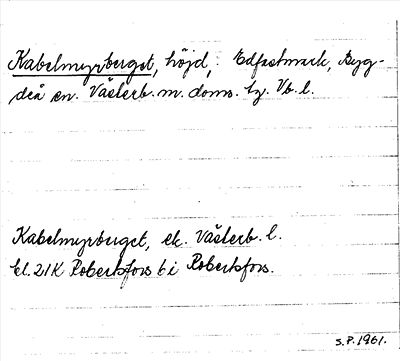 Kabelmyrberget, höjd, Edfastmark, Byg-
deå sn. Västerb. m. doms. tg. Vb. l.
Kabelmyrberget, ek. Västerb. l.
bl. 21K Robertsfors 6 i Robertsfors.
S.P. 1961.